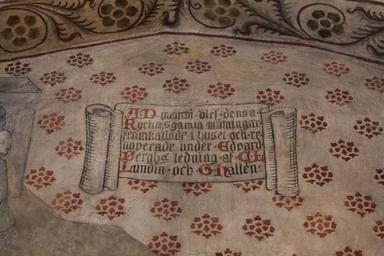 A.D. mcmvi blef denna
Kyrkas gamla målningar
framkallade i ljuset och re-
noverade under Edvard
Berghs ledning af C.E.
Lundin och G. Hallen